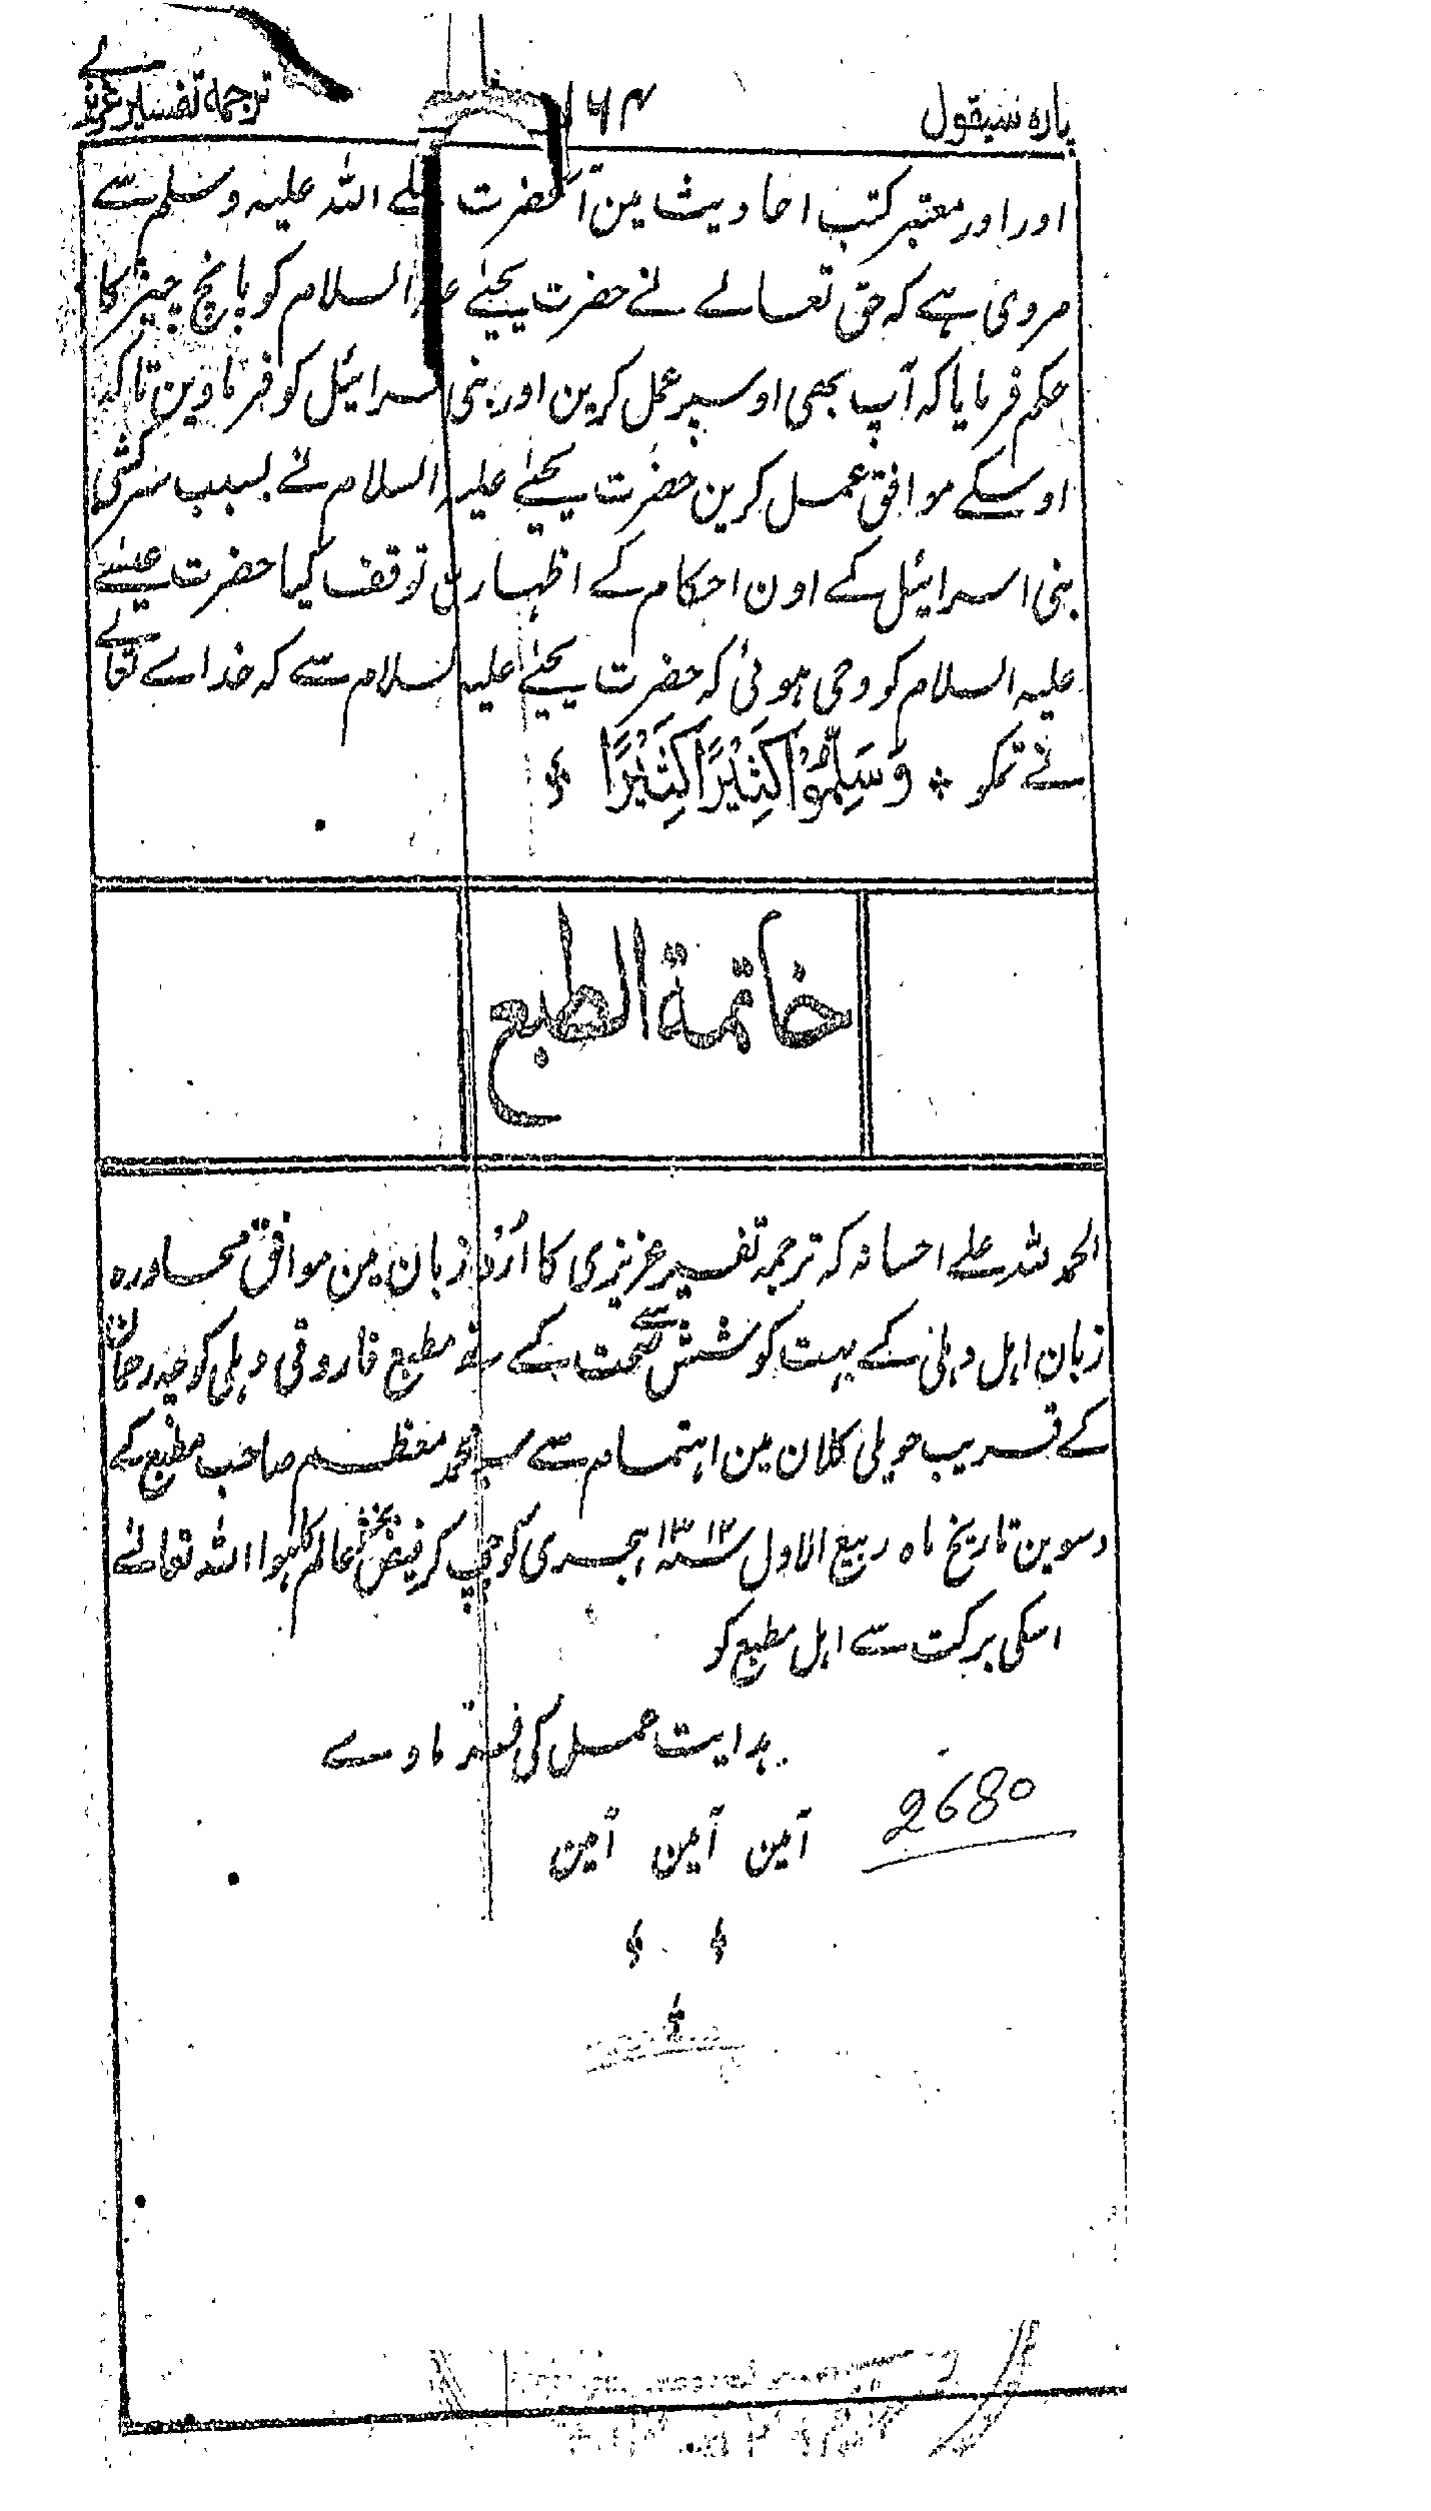 پاره سیقول
۱۶۴
ترجمه تفسیر عزیزے
اور اور معتبر کتب احادیث مین آنحضرت صلے اللہ علیہ وسلم سے
مروی ہے کہ حق تعالے نے حضرت یحیٰے علیہ السلام کو پانچ چیز کا
حکم فرمایا کہ آپ بھی اوسپر عمل کرین اور بنی اسرائیل کو فرماوین تاکہ
اوسکے موافق عمل کرین حضرت یحیٰے علیہ السلام نے بسبب سرکشی
بنی اسرائیل کے اون احکام کے اظہار مین توقف کیا حضرت عیسٰے
علیہ السلام کو وحی ہوئی کہ حضرت یحیٰے علیہ السلام سے کہ خداے تعالے
نے تمکو ٭ وَسَلِّمُوْا كَثِیْرًا كَثِیْرًا
خاتمة الطبع
الحمد للہ علے احسانہ کہ ترجمہ تفسیر عزیزی کا اُردُو زبان مین موافق محاورہ
زبان اہل دہلی کے بہت کوشش صحت کے سے مطبع فاروقی دہلی
کے قریب حویلی کلان مین اہتمام سے محمد معظم صاحب مطبع کے
دسوین تاریخ ماہ ربیع الاول سنہ ۱۳۱۲ ہجری کو چھپ کر فیض بخش عالم کا ہوا اللہ تعالے
اسکی برکت سے اہل مطبع کو
ہدایت عمل کی فرماوے
2680
آمین آمین آمین